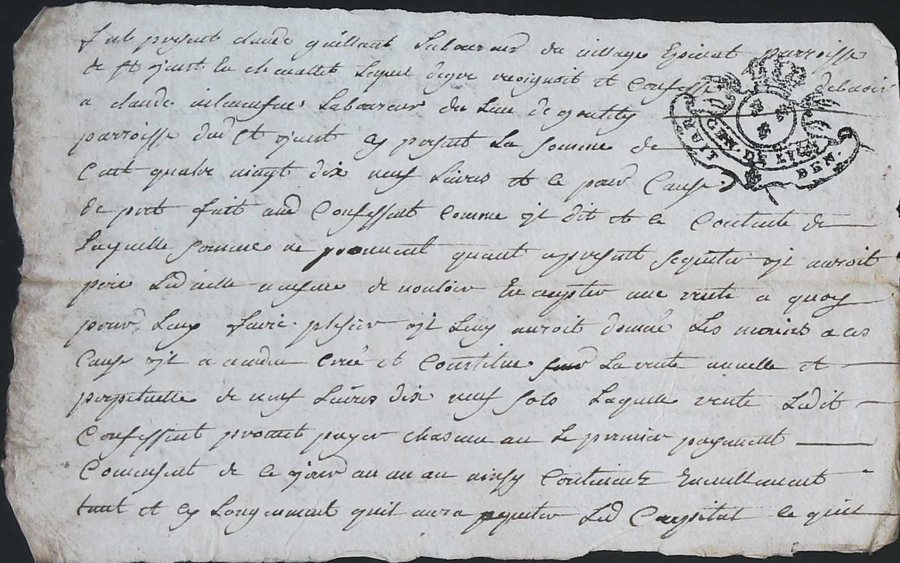 fut present claude guillaut Laboureur du village Epinat parroisse
de St just en chevallet lequel de gre recognoit et confesse debvoir
a claude Laboureur du Lieu de
parroisse dud St just cy present La somme de
Cent quatre vingt dix neuf Livres et ce pour Cause
de pret fait aud Confessant comme yl dit et se Contente de
Laquelle somme ne pouvant quant apresent sequiter yl auroit
prie Led de vouloir En accepter une rente a quoy
pour Luy faire plesir yl Luy auroit donné Les mains a ces
Cause yl a vendu créé et Constitue sur La rente annuelle et
perpetuelle de neuf Livres dix neuf sols Laquelle rente Ledit
Confessant promet payer chascun an Le premier payement
Comensent de ce jour an un an ainsy Continuer annuellement
tant et cy Longuement quil aura Led Cappital ce quil
GEN. DE
DEN.